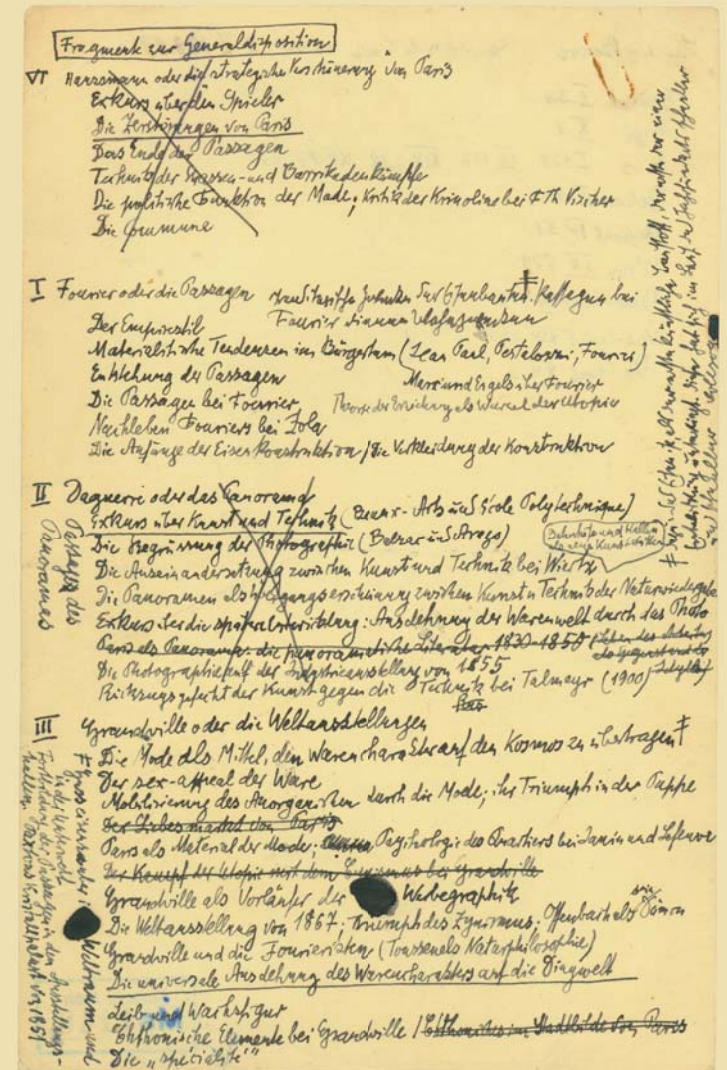 Fragmente zur Generaldisposition
VI Haussmann oder die strategische Verschönerung von Paris
Exkurs über den Spieler
Die Zerstörungen von Paris
Das Ende der Passagen
Technik der Strassen- und Barrikadenkämpfe
Die politische Funktion der Mode; Kritik der Krinoline bei F Th Vischer
Die Commune
I Fourier oder die Passagen
Fourier
Der Empirestil
Materialistische Tendenzen im Bürgertum (Jean Paul, Pestalozzi, Fourier)
Entstehung der Passagen
Marx und Engels über Fourier
Die Passagen bei Fourier
Theorie der Erziehung als Wurzel der Utopie
Nachleben Fouriers bei Zola
Die Anfänge der Eisenkonstruktion / Die Verkleidung der Konstruktion
II Daguerre oder das Panorama
Passage des Panoramas
Exkurs über Kunst und Technik (Beaux-Arts und École Polytechnique)
Die Begrüssung der Photographie (Balzac und Arago)
Bahnhöfe und Hallen als neue Kunststätten
Die Auseinandersetzung zwischen Kunst und Technik bei Wiertz
Die Panoramen als Übergangserscheinung zwischen Kunst u Technik der Naturwiedergabe
Exkurs über die spätere Entwicklung: Ausdehnung der Warenwelt durch das Photo
Paris als Panorama: die panoramatische Literatur 1830-1850
Die Photographie auf der Industrieausstellung von 1855
Rückzugsgefecht der Kunst gegen die Technik bei Talmeyr (1900)
III Grandville oder die Weltausstellungen
Die Mode als Mittel, den Warencharakter auf den Kosmos zu übertragen ‡
Der sex-appeal der Ware
Mobilisierung des Anorganischen durch die Mode; ihr Triumph in der Puppe
Der Liebesmarkt von Paris
Paris als Material der Mode; Psychologie des Quartiers bei Janin und Lefeuve
Der Kampf der Utopie mit dem Cynismus bei Grandville
Grandville als Vorläufer der Werbegraphik
Die Weltausstellung von 1867; Triumph des Zynismus; Offenbach als sein Dämon
Grandville und die Fourieristen (Toussenels Naturphilosophie)
Die universale Ausdehnung des Warencharakters auf die Dingwelt
Leib und Wachsfigur
Chthonische Elemente bei Grandville / Chthonisches im Stadtbilde von Paris
Die „spécialité“
Weltraum und in der Unterwelt
Fortbildung der Passagen in den Ausstellungshallen, Paxtons Kristallpalast von 1851